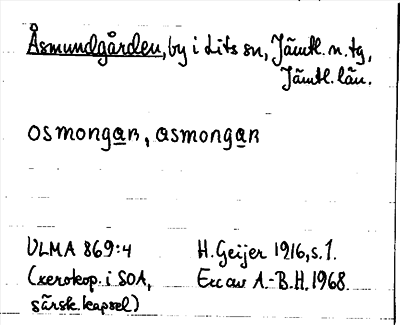 Åsmundgården, by i Lits sn, Jämtl. n. tg,
Jämtl. län.
osmongaʀ, asmongaʀ
ULMA 869:4
(xerokop. i SOA,
särsk. kapsel)
H. Geijer 1916, s. 1.
Exc av A.-B.H. 1968.